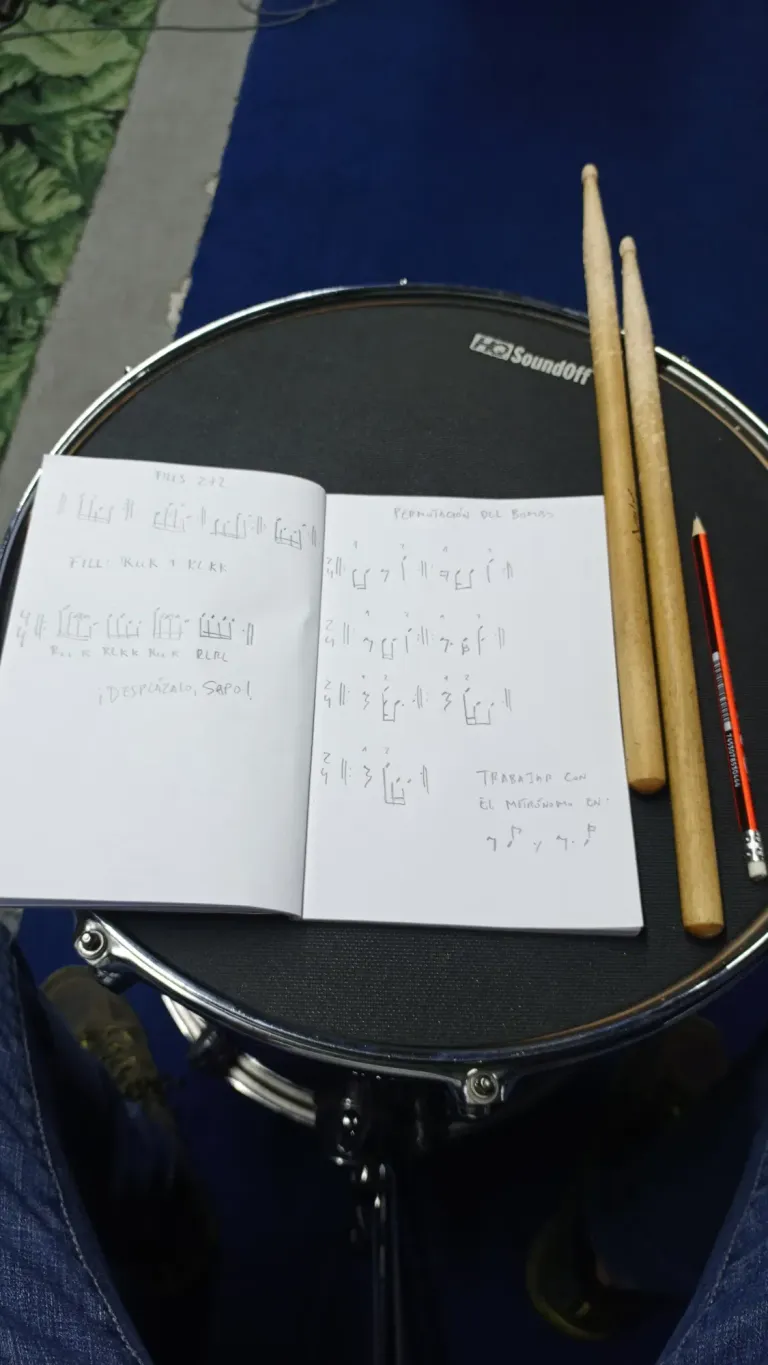 HQ SoundOff
FILLS 2x2
FILL: RLLR Y RLRR
4/4
RLLR RLRR RLLR RLRL
¡DESPLÁZALO, SAPO!
PERMUTACIÓN DEL BOMBO
2/4
2/4
2/4
2/4
TRABAJAR CON
EL METRÓNOMO EN: